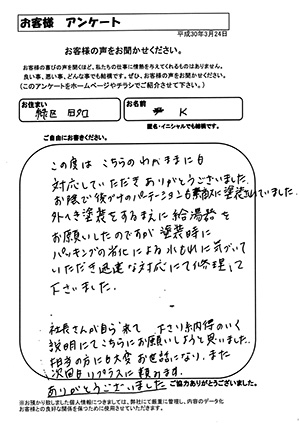 お客様 アンケート
平成30年3月24日
お客様の声をお聞かせください。
お客様の喜びの声を聞くほど、私たちの仕事に情熱を与えてくれるものはありません。
良い事、悪い事、どんな事でも結構です。ぜひ、お客様の声をお聞かせください。
(このアンケートをホームページやチラシでご紹介させて下さい。)
お住まい
緑区
お名前
K
匿名・イニシャルでも結構です。
ご自由にお書きください。
この度は こちらのわがままにも
対応していただき ありがとうございました。
お陰で後づけのパーテーションも素敵に塗装されていました。
外へき塗装をするまえに給湯器を
お願いしたのですが塗装時に
パッキングの劣化による水もれに気づいて
いただき迅速な対応にて修理して
下さいました。
社長さんが自ら来て 下さり納得のいく
説明にてこちらにお願いしようと思いました。
担当の方にも大変お世話になり、また
次回も リプラスに頼みます。
ありがとうございました
ご協力ありがとうございました。
※お預かり致しました個人情報につきましては、弊社にて厳重に管理し、内容のデータ化
お客様との良好な関係を保つために使用させていただきます。